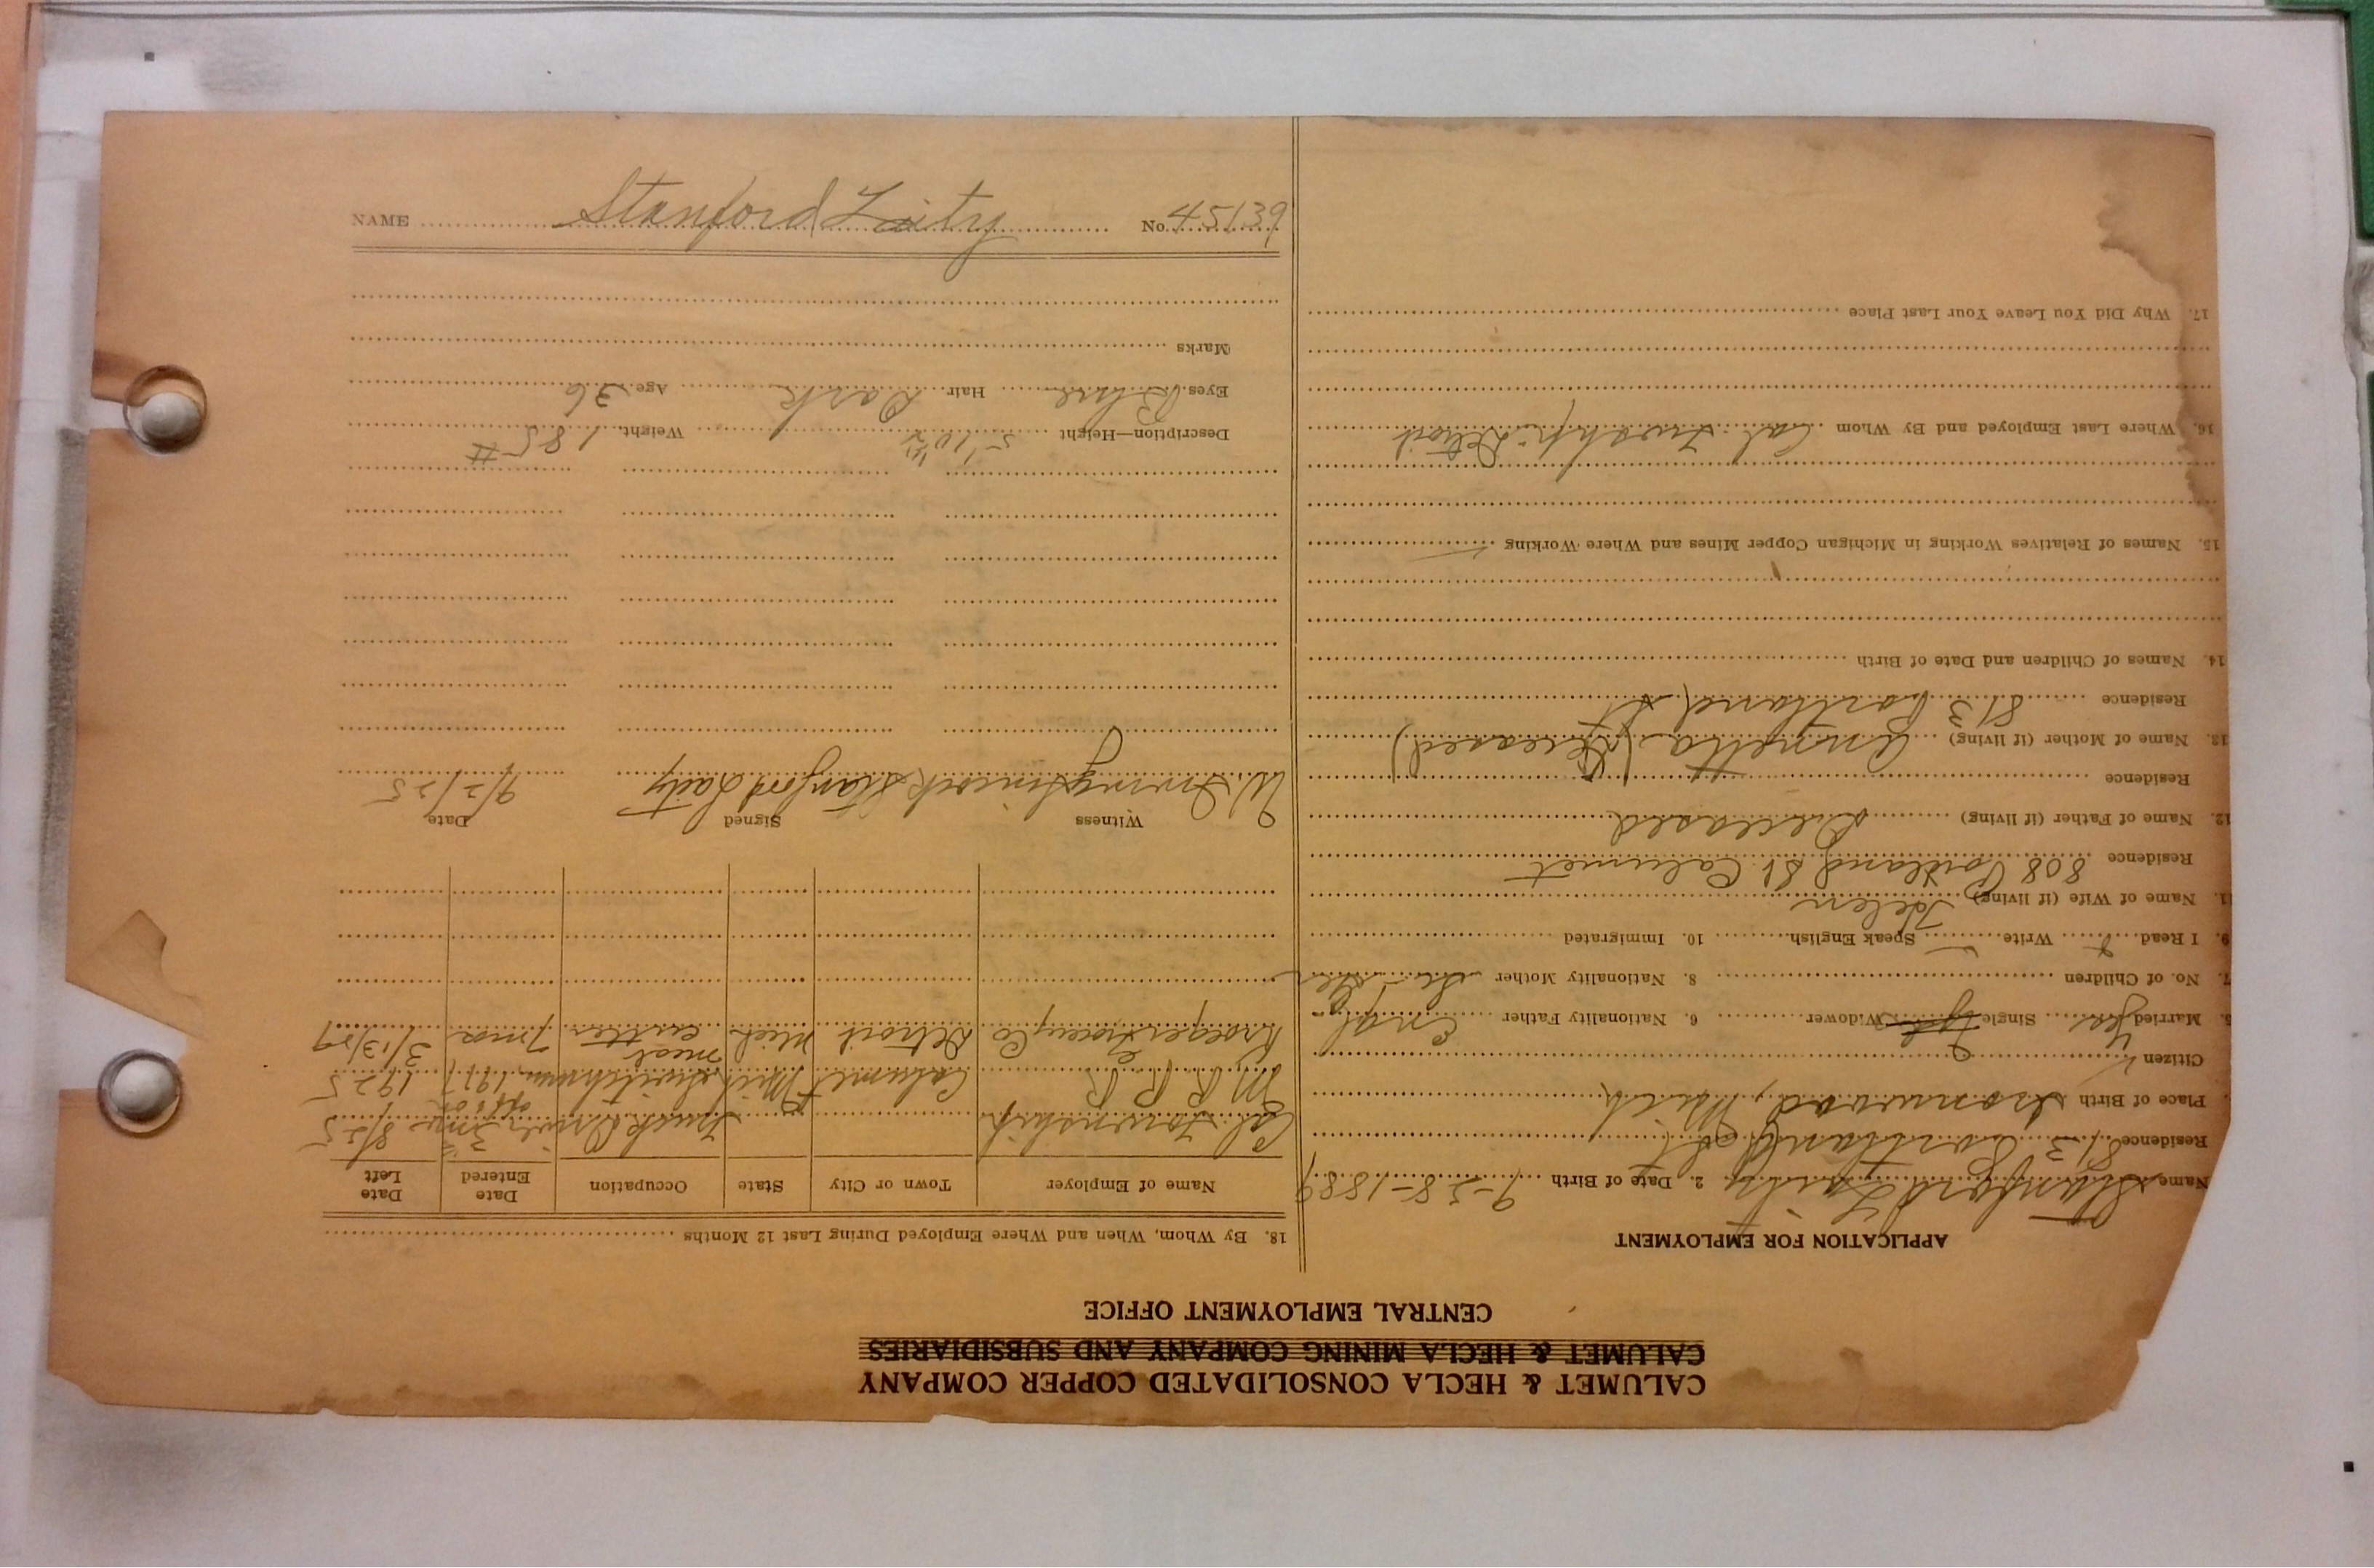 CALUMET & HECLA CONSOLIDATED COPPER COMPANY
CALUMET & HECLA MINING COMPANY AND SUBSIDIARIES
CENTRAL EMPLOYMENT OFFICE
APPLICATION FOR EMPLOYMENT
Name Stanford Laity 2. Date of Birth 9-28-1889
Residence 813 Portland St
Place of Birth Ironwood, Mich
Citizen
5. Married Yes Single Widower 6. Nationality Father Engl
7. No. of Children 8. Nationality Mother
9. I Read Write Speak English 10. Immigrated
11. Name of Wife (if living) Helen
Residence 808 Portland St. Calumet
12. Name of Father (if living) Deceased
Residence
13. Name of Mother (if living) Annetta (Deceased)
Residence 813 Portland St
14. Names of Children and Date of Birth
15. Names of Relatives Working in Michigan Copper Mines and Where Working
16. Where Last Employed and By Whom Cal. Twshp. - Detroit
17. Why Did You Leave Your Last Place
18. By Whom, When and Where Employed During Last 12 Months
Name of Employer Town or City State Occupation Date Entered Date Left
Cal Township Truck Driver 3 mos 8/25
M R R R Calumet Mich Switchman 1917 1925
Kroger Grocery Co Detroit Mich meat cutter 7 mos 3/13/27
Witness Signed Date
W. Irving Stanford Laity 9/2/25
Description—Height 5' 10 1/2" Weight 185 #
Eyes Blue Hair Dark Age 36
Marks
NAME Stanford Laity No. 45139